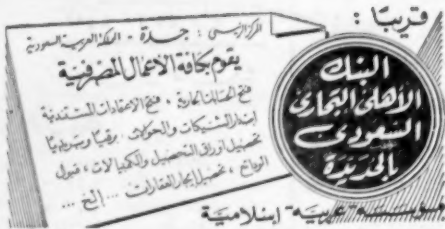 قريبًا :
البنك
الأهلى التجارى
السعودى
بالحديدة
المركز الرئيسى : جدة - المملكة العربية السعودية
يقوم بكافة الأعمال المصرفية
فتح الحسابات الجارية ، فتح الاعتمادات المستندية
إصدار الشيكات والحوالات برقيا وبريديا
تحصيل اوراق التحصيل والكمبيالات ، قبول
الودائع ، تحصيل إيجار العقارات ... إلخ ...
مؤسسة عربية إسلامية